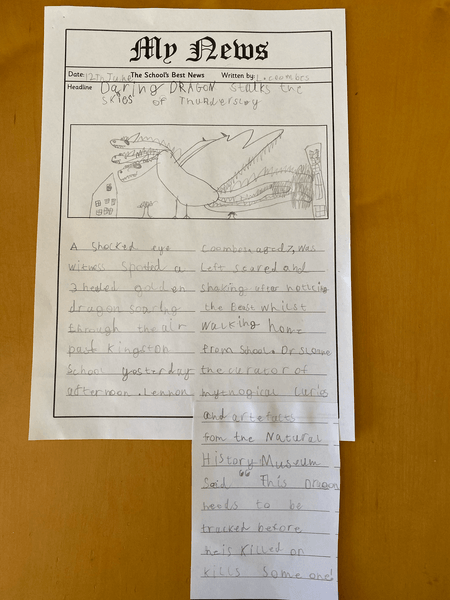 My News
Date: 12th June The School's Best News Written by: L. coombes
Headline Daring DRAGON stalks the
skies of Thundersley
A Shocked eye
witness Spouted a
3 headed golden
dragon soaring
through the air
past Kingston
School yesterday
afternoon. Lennon
Coombes aged 7, was
left scared and
shaking after noticing
the Beast whilst
walking home
from School. Dr Sloane
the curator of
mythogical Curios
and artefacts
fom the Natural
History Museum
Said "This Dragon
needs to be
tracked before
he is killed on
kills Some one!